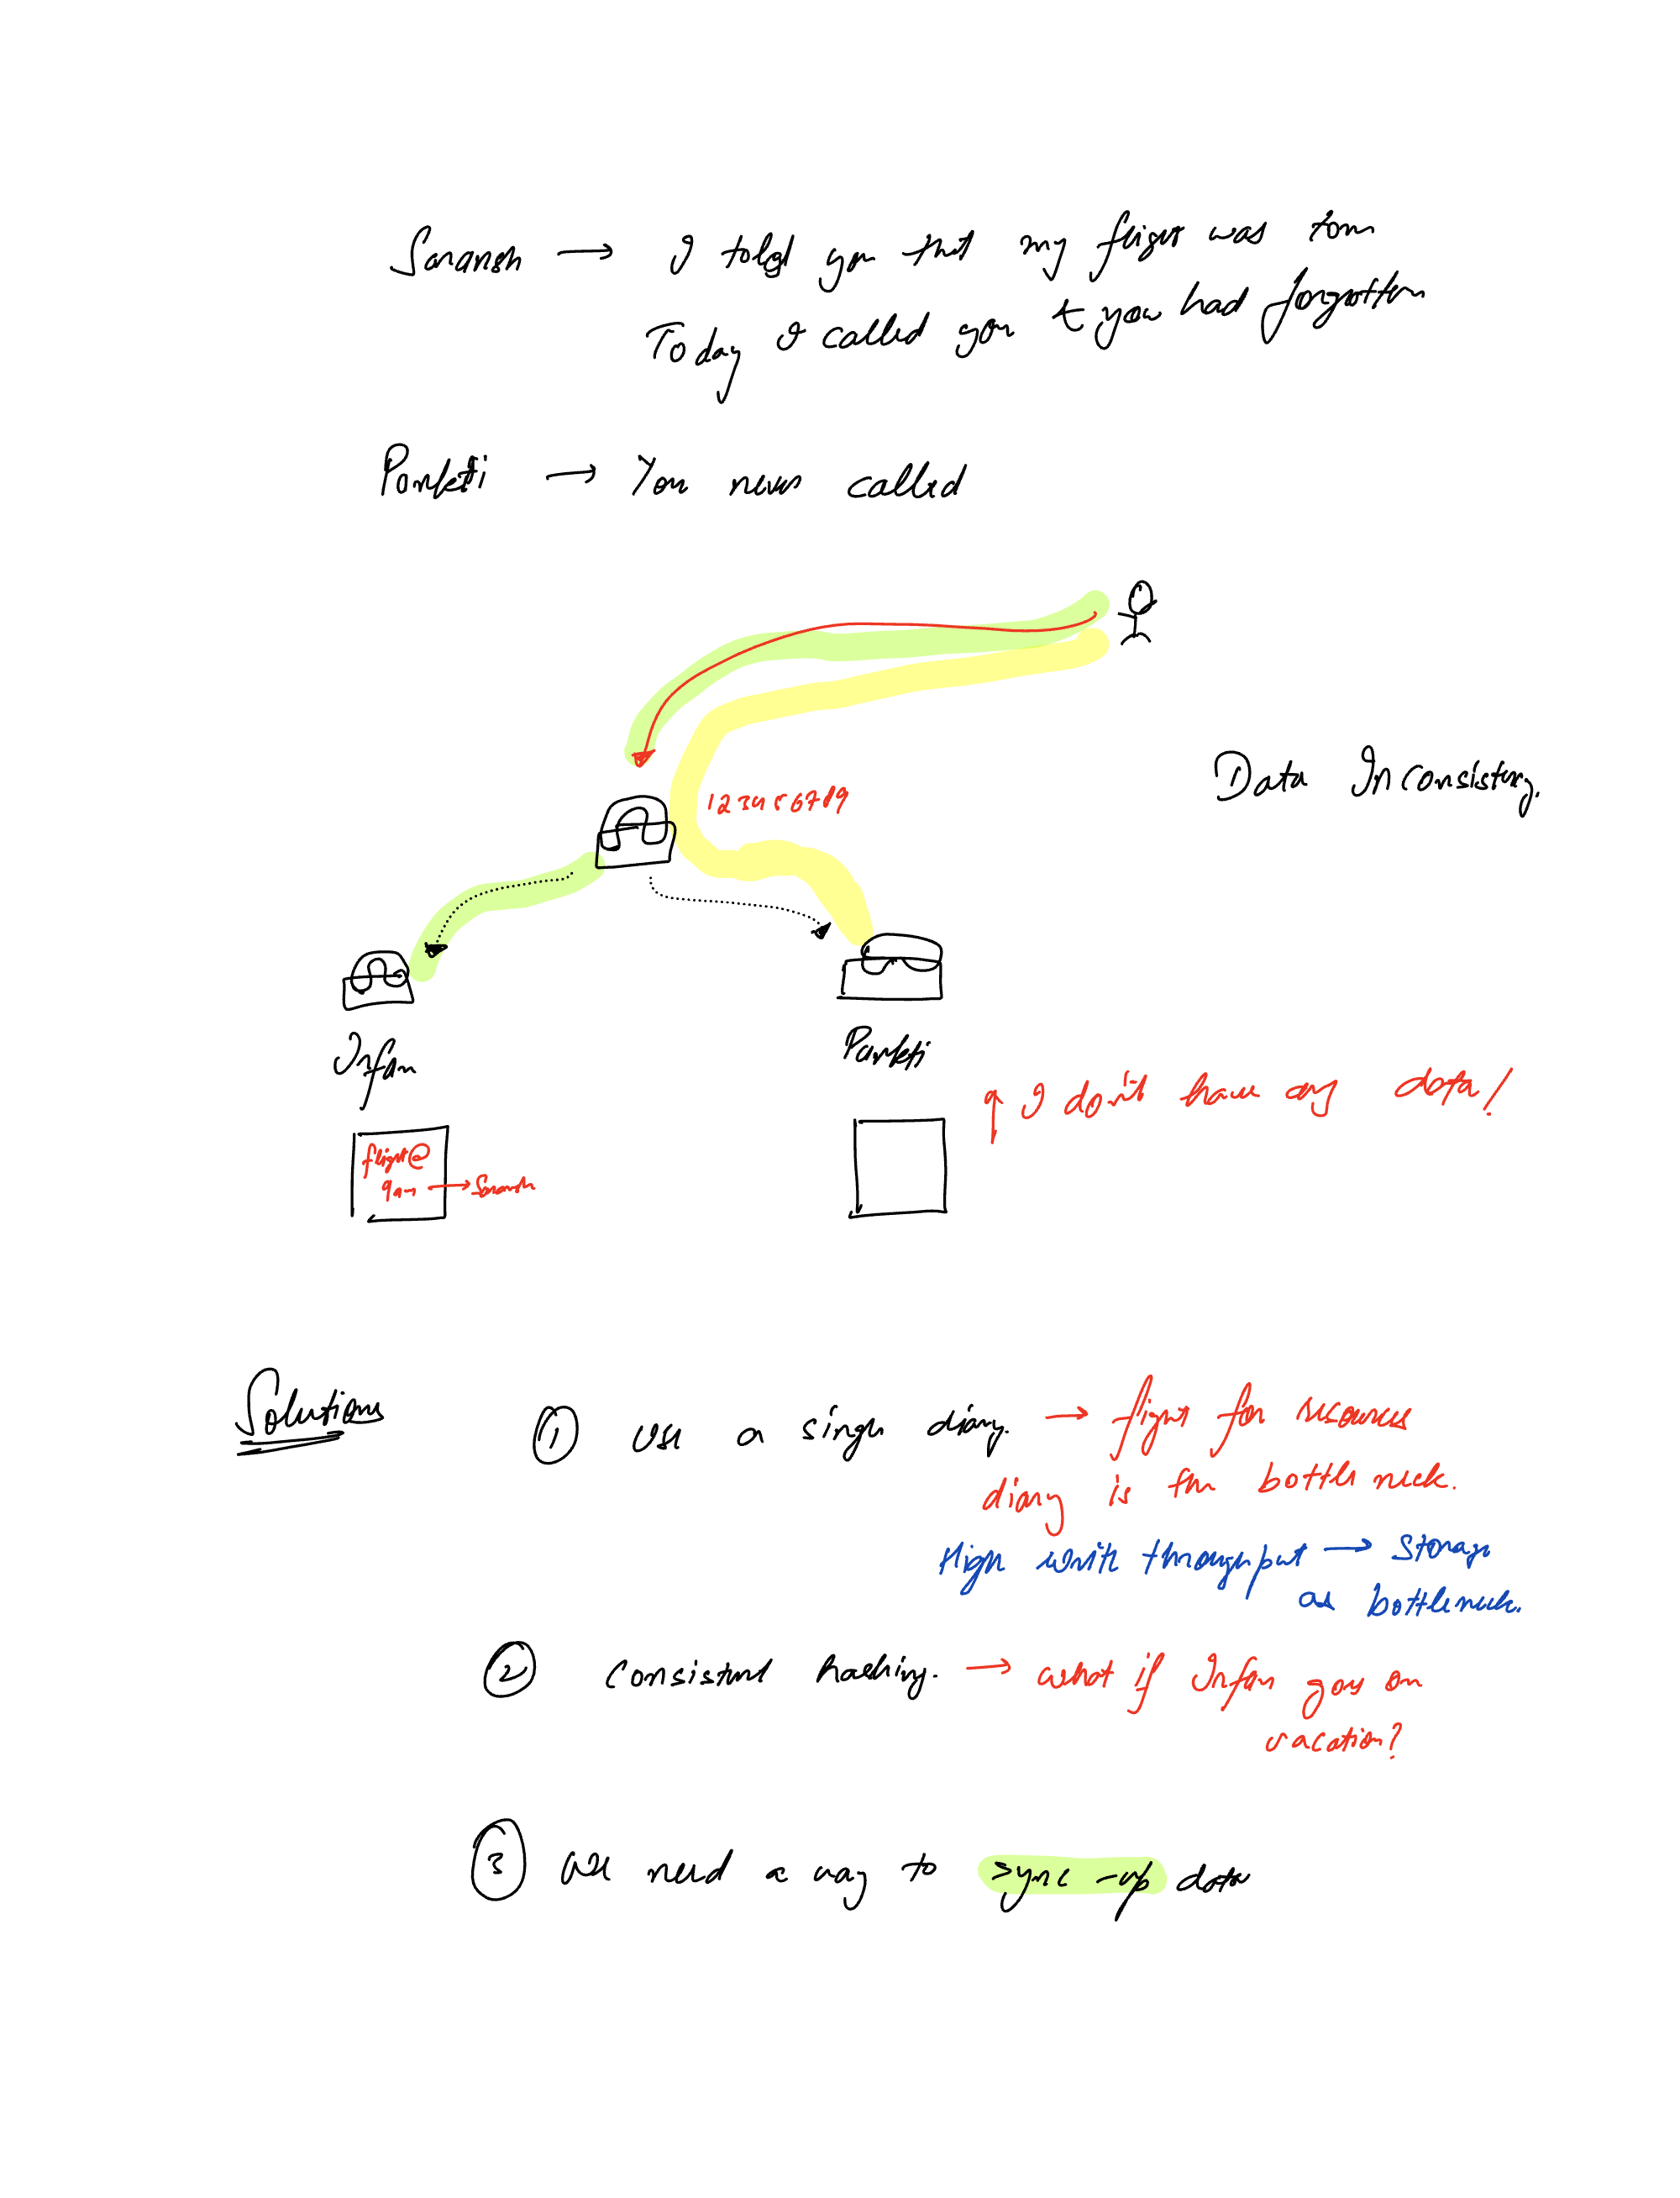 Saransh → I told you that my flight was tom
Today I called you & you had forgotten
Pankti → You never called
123456789
Data Inconsistency.
Irfan
Pankti
↑ I don't have any data!
flight @
9am → Saransh
Solutions
① Use a single diary. → fight for resources
diary is the bottle neck.
High write throughput → Storage
as bottleneck.
② Consistent hashing. → what if Irfan goes on
vacation?
③ We need a way to sync-up data